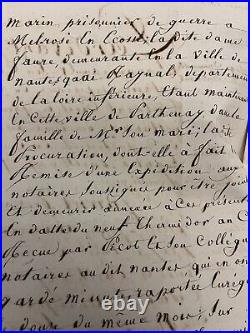 marin prisonnier de guerre a
Melrose En Ecosse, la dite dame
Faure, demeurante En la ville de
nantes quai Rayual, departement
de la loire inferieure, Etant maintenant
En Cette ville de Parthenay dans la
famille de Mr son mari, laite
Procuration, dont elle à fait
Remise d'une Expédition aux
notaires soussignés pour être joint
Et demeurer annexée à Ces présent
En datte du neuf Thermidor an
Recue par Et son Collègue
notaires au dit nantes qui en ont
garde minute, raportée Enrég
douze du même mois, sur